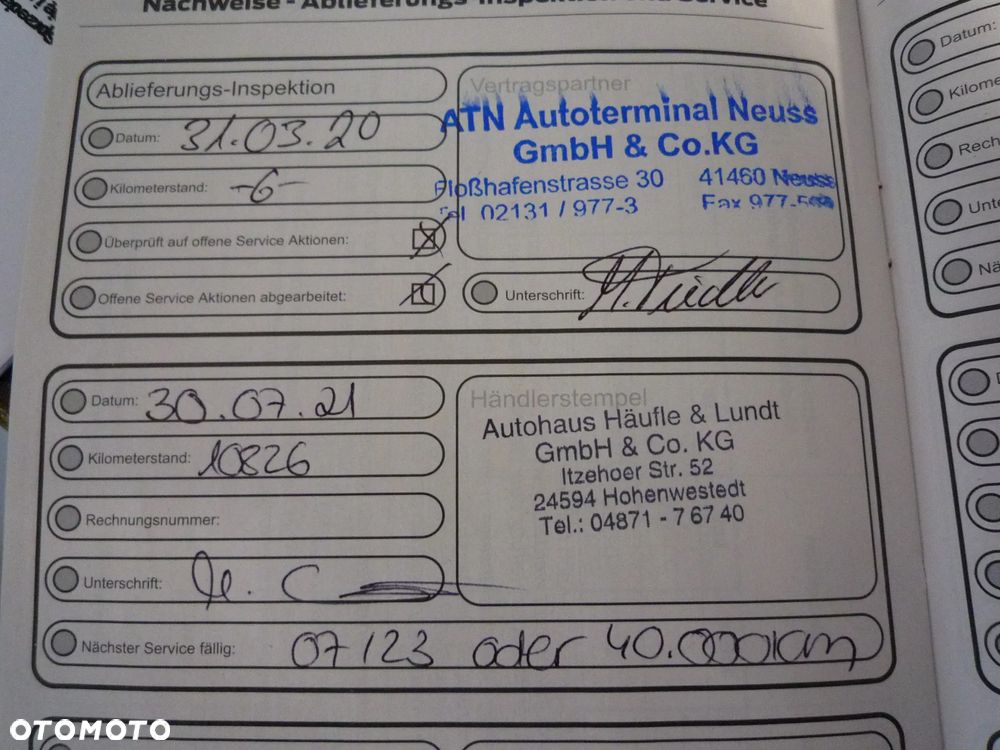 Nachweise - Ablieferungs-Inspektion und Service
Ablieferungs-Inspektion
Datum: 31.03.20
Kilometerstand: -6-
Überprüft auf offene Service Aktionen:
Offene Service Aktionen abgearbeitet:
Vertragspartner
ATN Autoterminal Neuss
GmbH & Co.KG
Floßhafenstrasse 30 41460 Neuss
Tel. 02131 / 977-3 Fax 977-
Unterschrift:
Datum: 30.07.21
Kilometerstand: 10826
Rechnungsnummer:
Unterschrift:
Händlerstempel
Autohaus Häufle & Lundt
GmbH & Co. KG
Itzehoer Str. 52
24594 Hohenwestedt
Tel.: 04871 - 7 67 40
Nächster Service fällig: 07/23 oder 40.000km
Datum:
OTOMOTO